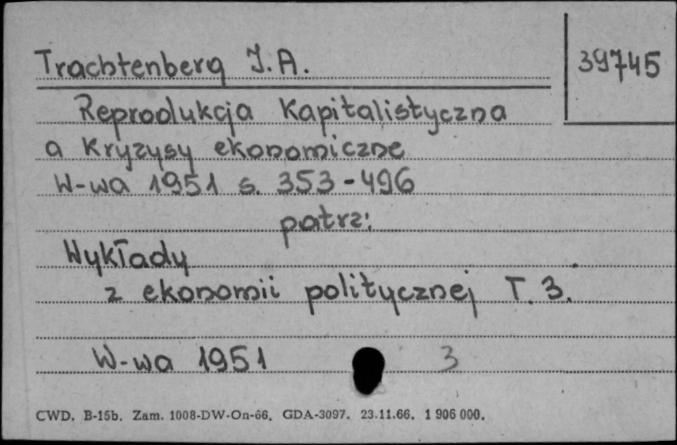 Trachtenberg J. A.
39745
Reprodukcja Kapitalistyczna
a Kryzysy ekonomiczne
W-wa 1951 s. 353-496
patrz:
Wykłady
z ekonomii politycznej T. 3.
W-wa 1951 3
CWD. B-15b. Zam. 1008-DW-On-66. GDA-3097. 23.11.66. 1 906 000.